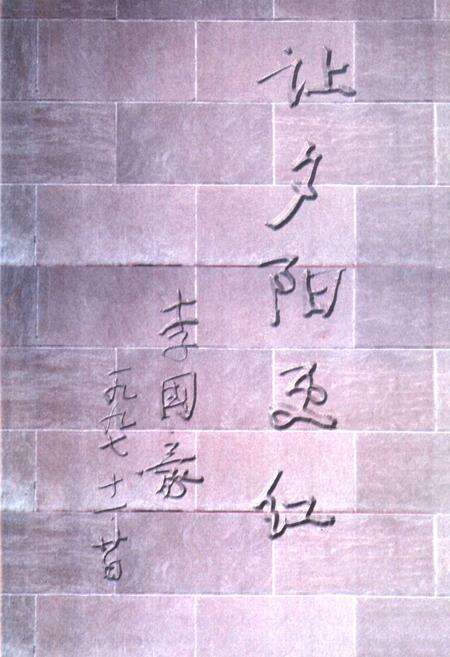 让夕阳更红
李國豪
一九九七 十一 廿日